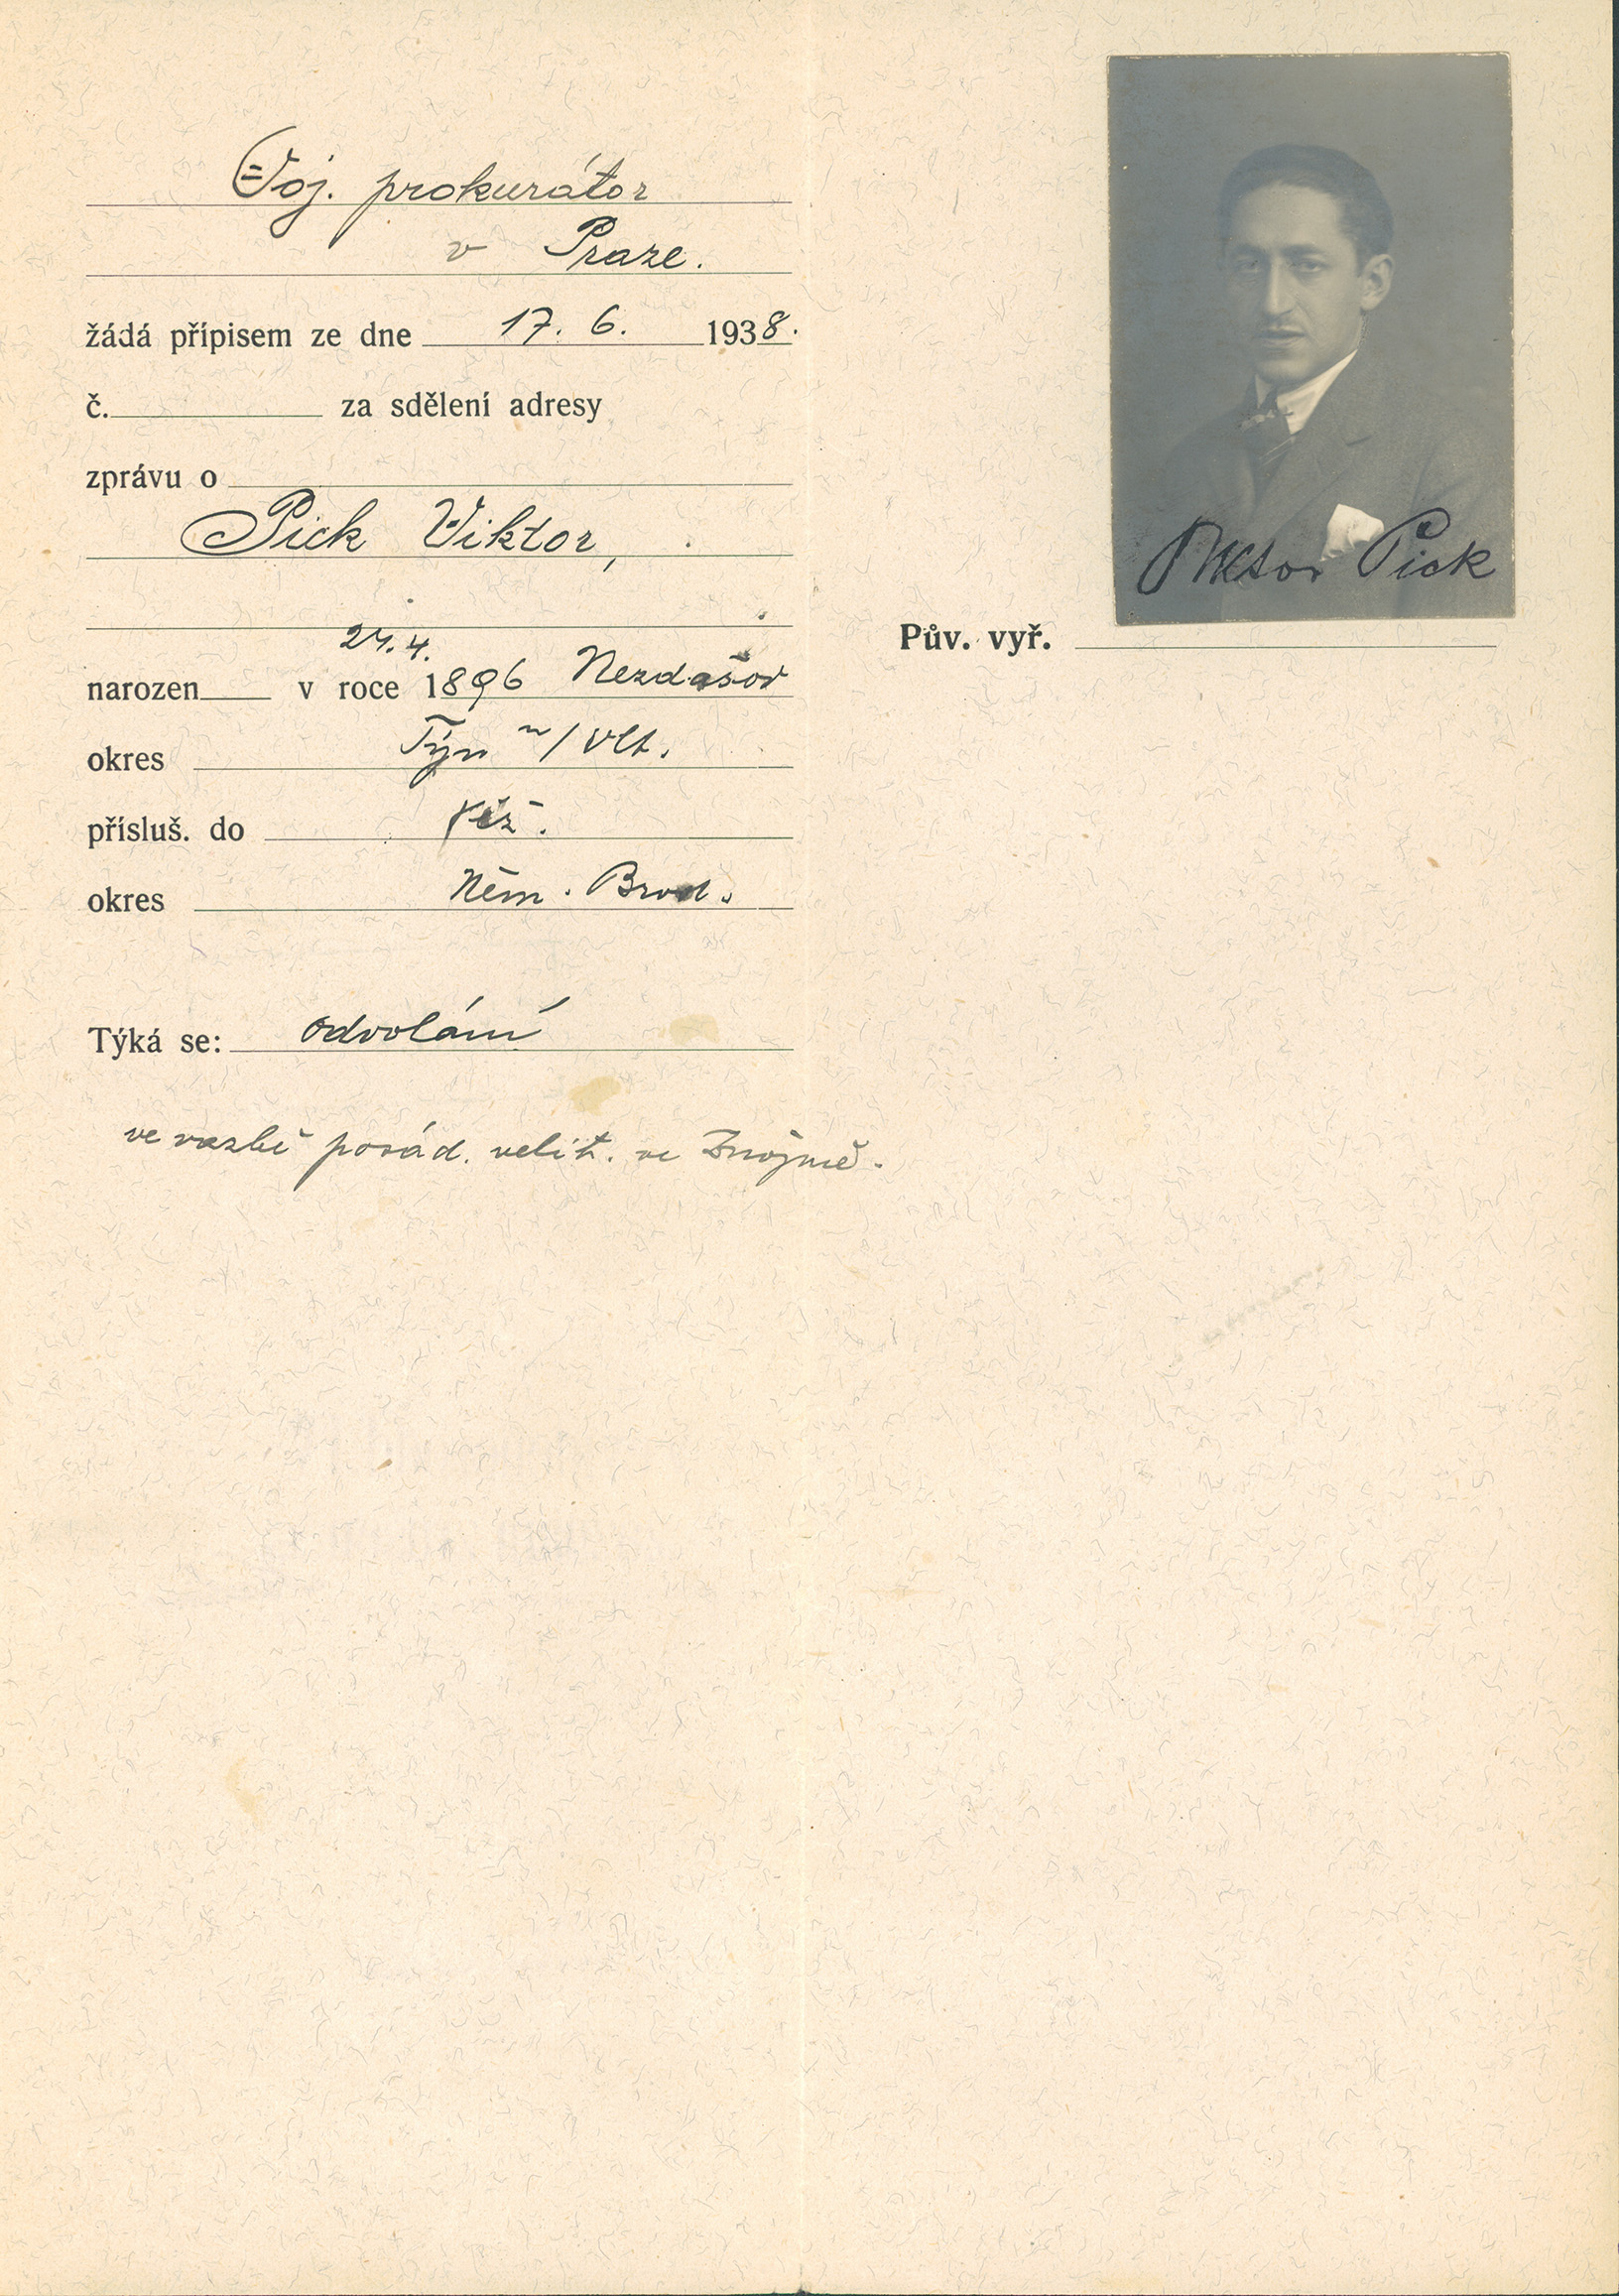 Voj. prokurátor
v Praze.
žádá přípisem ze dne 17. 6. 1938.
č. za sdělení adresy
zprávu o
Pick Viktor,
24. 4.
narozen v roce 1896 Nezdašov
okres Týn n/Vlt.
přísluš. do Věž.
okres Něm. Brod.
Týká se: odvolání
ve vazbě posád. velit. ve Znojmě.
Viktor Pick
Pův. vyř.